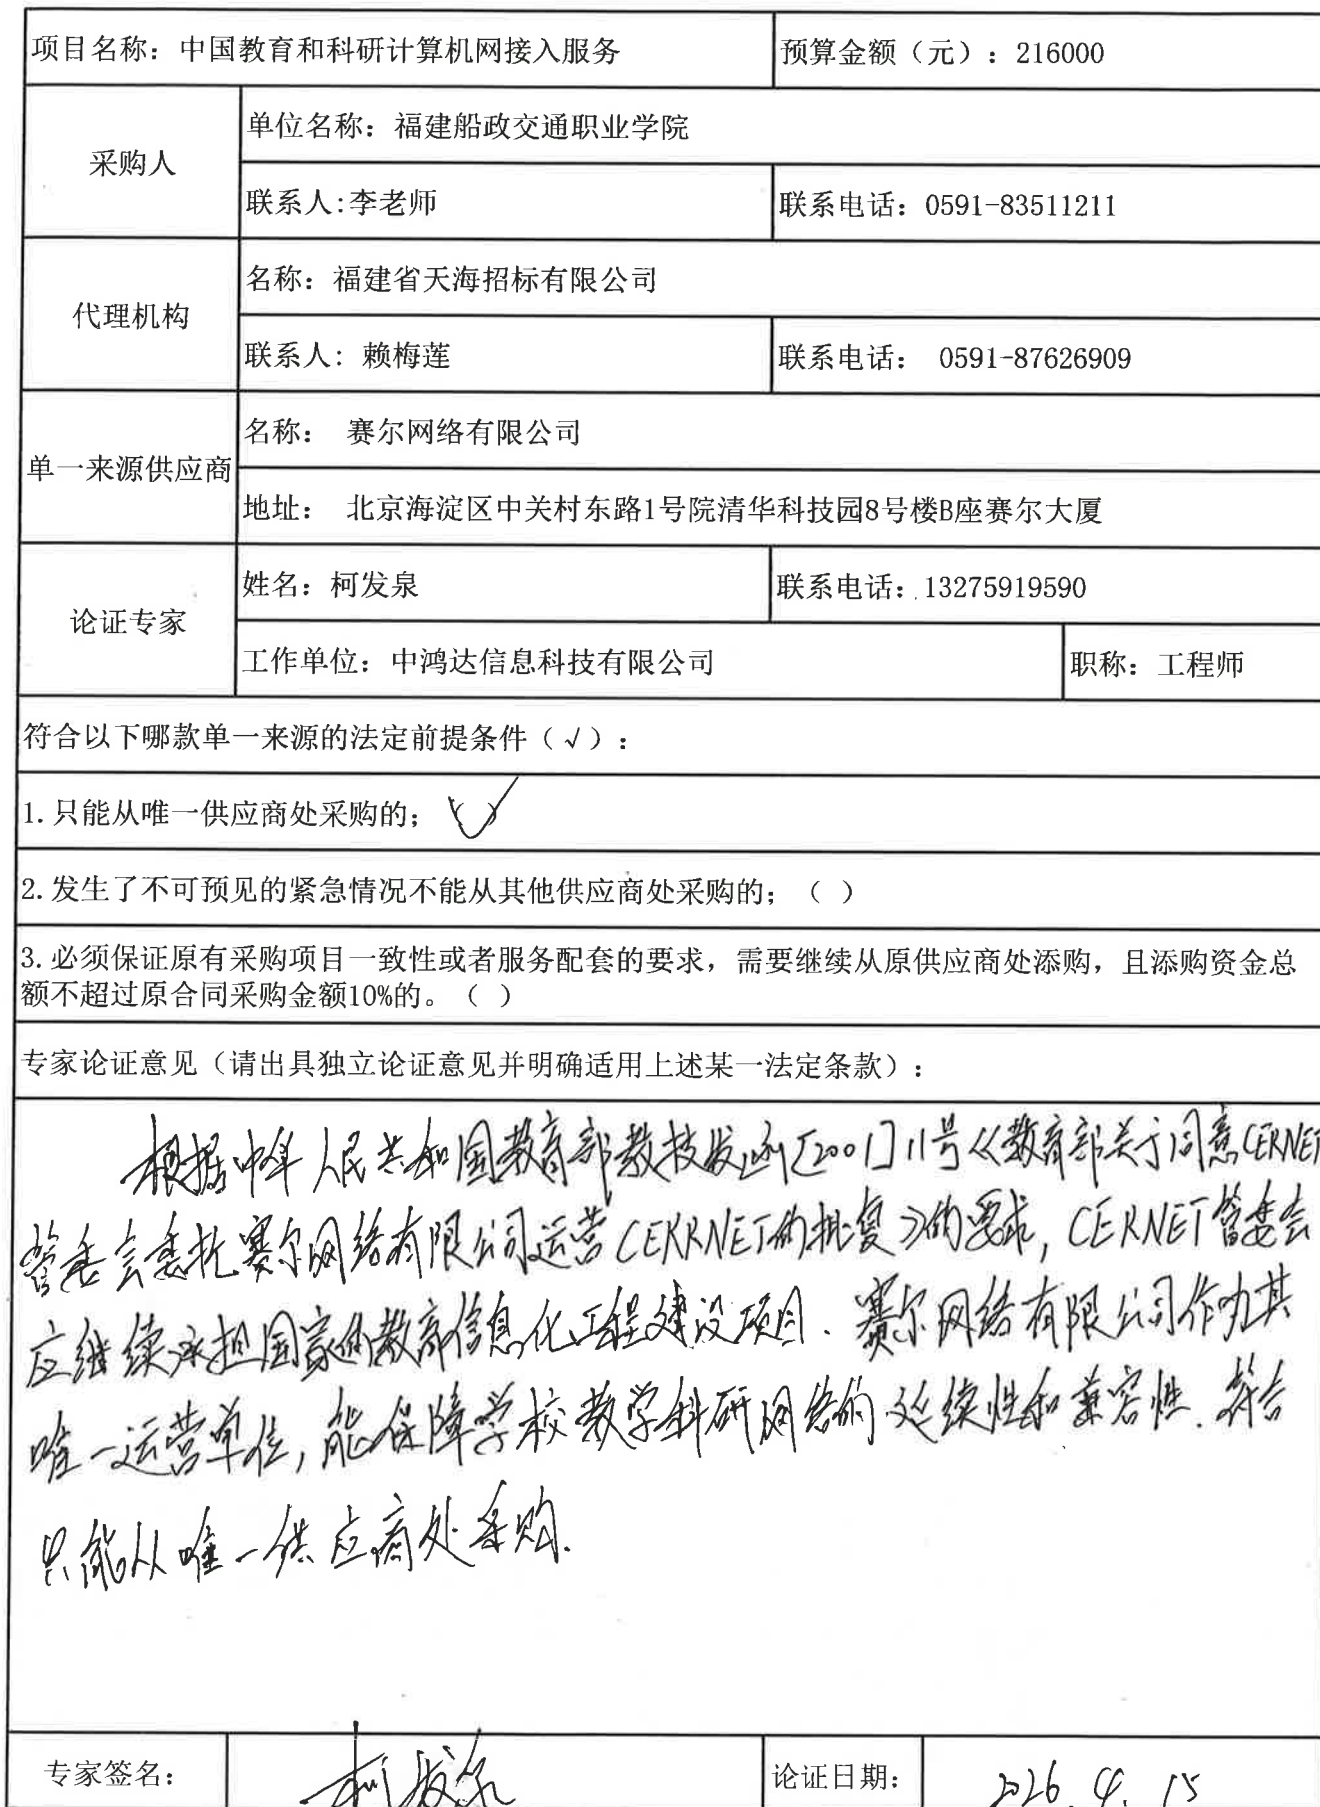 项目名称：中国教育和科研计算机网接入服务 预算金额（元）：216000
采购人
单位名称：福建船政交通职业学院
联系人:李老师 联系电话：0591-83511211
代理机构
名称：福建省天海招标有限公司
联系人：赖梅莲 联系电话： 0591-87626909
单一来源供应商
名称： 赛尔网络有限公司
地址： 北京海淀区中关村东路1号院清华科技园8号楼B座赛尔大厦
论证专家
姓名：柯发泉 联系电话：13275919590
工作单位：中鸿达信息科技有限公司 职称：工程师
符合以下哪款单一来源的法定前提条件（√）：
1.只能从唯一供应商处采购的；（√）
2.发生了不可预见的紧急情况不能从其他供应商处采购的；（ ）
3.必须保证原有采购项目一致性或者服务配套的要求，需要继续从原供应商处添购，且添购资金总
额不超过原合同采购金额10%的。（ ）
专家论证意见（请出具独立论证意见并明确适用上述某一法定条款）：
根据中华人民共和国教育部教技发函[2001]11号《教育部关于同意CERNET
管委会委托赛尔网络有限公司运营CERRNET的批复》的要求，CERNET管委会
应继续承担国家的教育信息化工程建设项目．赛尔网络有限公司作为其
唯一运营单位，能保障学校教学科研网络的延续性和兼容性．符合
只能从唯一供应商处采购．
专家签名： 柯发泉 论证日期： 2026.4.15